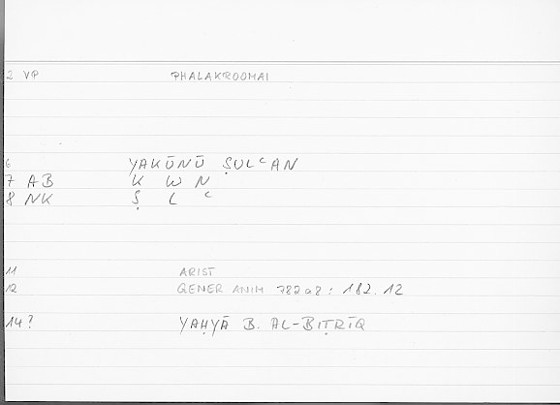 2 VP PHALAKROOMAI
6 YAKŪNŪ ṢULᶜAN
7 AB K W N
8 NK Ṣ L ᶜ
11 ARIST
12 GENER ANIM 782a8: 182.12
14? YAḤYĀ B. AL-BIṬRĪQ